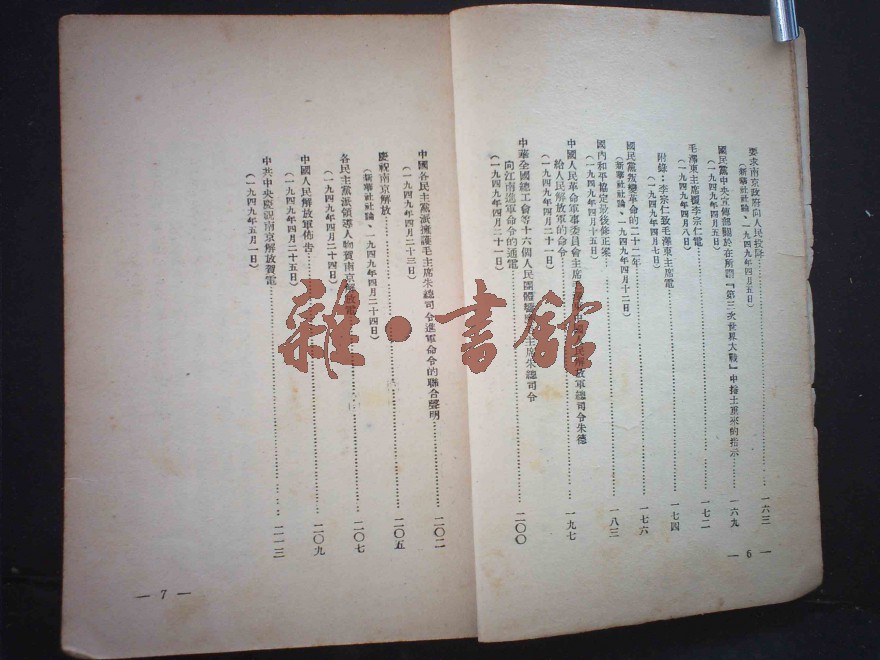 要求南京政府向人民投降……一六三
(新華社社論、一九四九年四月五日)
國民黨中央宣傳部關於在所謂『第三次世界大戰』中捲土重來的指示……一六九
(一九四九年四月五日)
毛澤東主席覆李宗仁電……一七二
(一九四九年四月八日)
附錄:李宗仁致毛澤東主席電……一七四
(一九四九年四月七日)
國民黨叛變革命的二十二年……一七六
(新華社社論、一九四九年四月十二日)
國內和平協定最後修正案……一八三
(一九四九年四月十五日)
中國人民革命軍事委員會主席 中國人民解放軍總司令朱德
給人民解放軍的命令……一九七
(一九四九年四月二十一日)
中華全國總工會等十六個人民團體 主席朱總司令
向江南進軍命令的通電……二〇〇
(一九四九年四月二十一日)
— 6 —
中國各民主黨派擁護毛主席朱總司令進軍命令的聯合聲明……二〇二
(一九四九年四月二十三日)
慶祝南京解放……二〇五
(新華社社論、一九四九年四月二十四日)
各民主黨派領導人物賀南京解放電……二〇七
(一九四九年四月二十四日)
中國人民解放軍佈告……二〇九
(一九四九年四月二十五日)
中共中央慶祝南京解放賀電……二一三
(一九四九年五月一日)
— 7 —
雜·書館